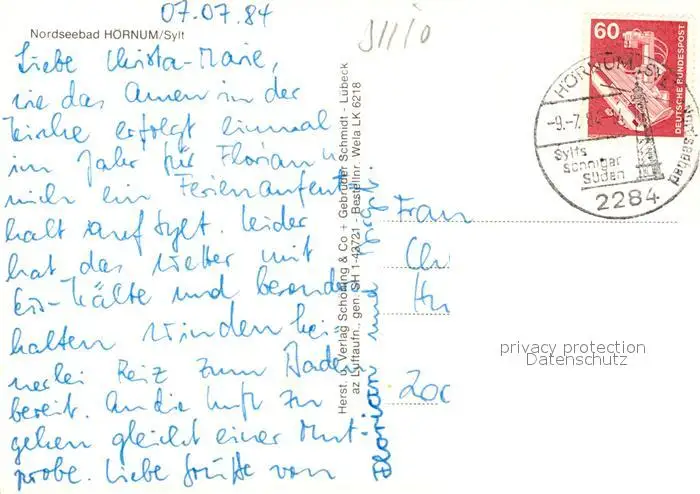 07.07.84
Nordseebad HÖRNUM/Sylt
Liebe Christa-Marie,
wie das Amen in der
Kirche erfolgt einmal
im Jahr für Florian u
mich ein Ferienaufent
halt auf Sylt. Leider
hat das Wetter mit
Eis-Kälte und
halten Winden kei-
nerlei Reiz zum Baden
bereit. An die Luft zu
gehen gleicht einer Mut-
probe. Liebe Grüße von
Florian und
Herst. u. Verlag Schöning & Co + Gebrüder Schmidt - Lübeck
az Luftaufn., gen. SH 1-43721 - Bestellnr. Wela LK 6218
60
DEUTSCHE BUNDESPOST
HÖRNUM, SYLT
-9.-7.
Sylts
sonniger
Süden
Nordseebad
2284
Frau
privacy protection
Datenschutz